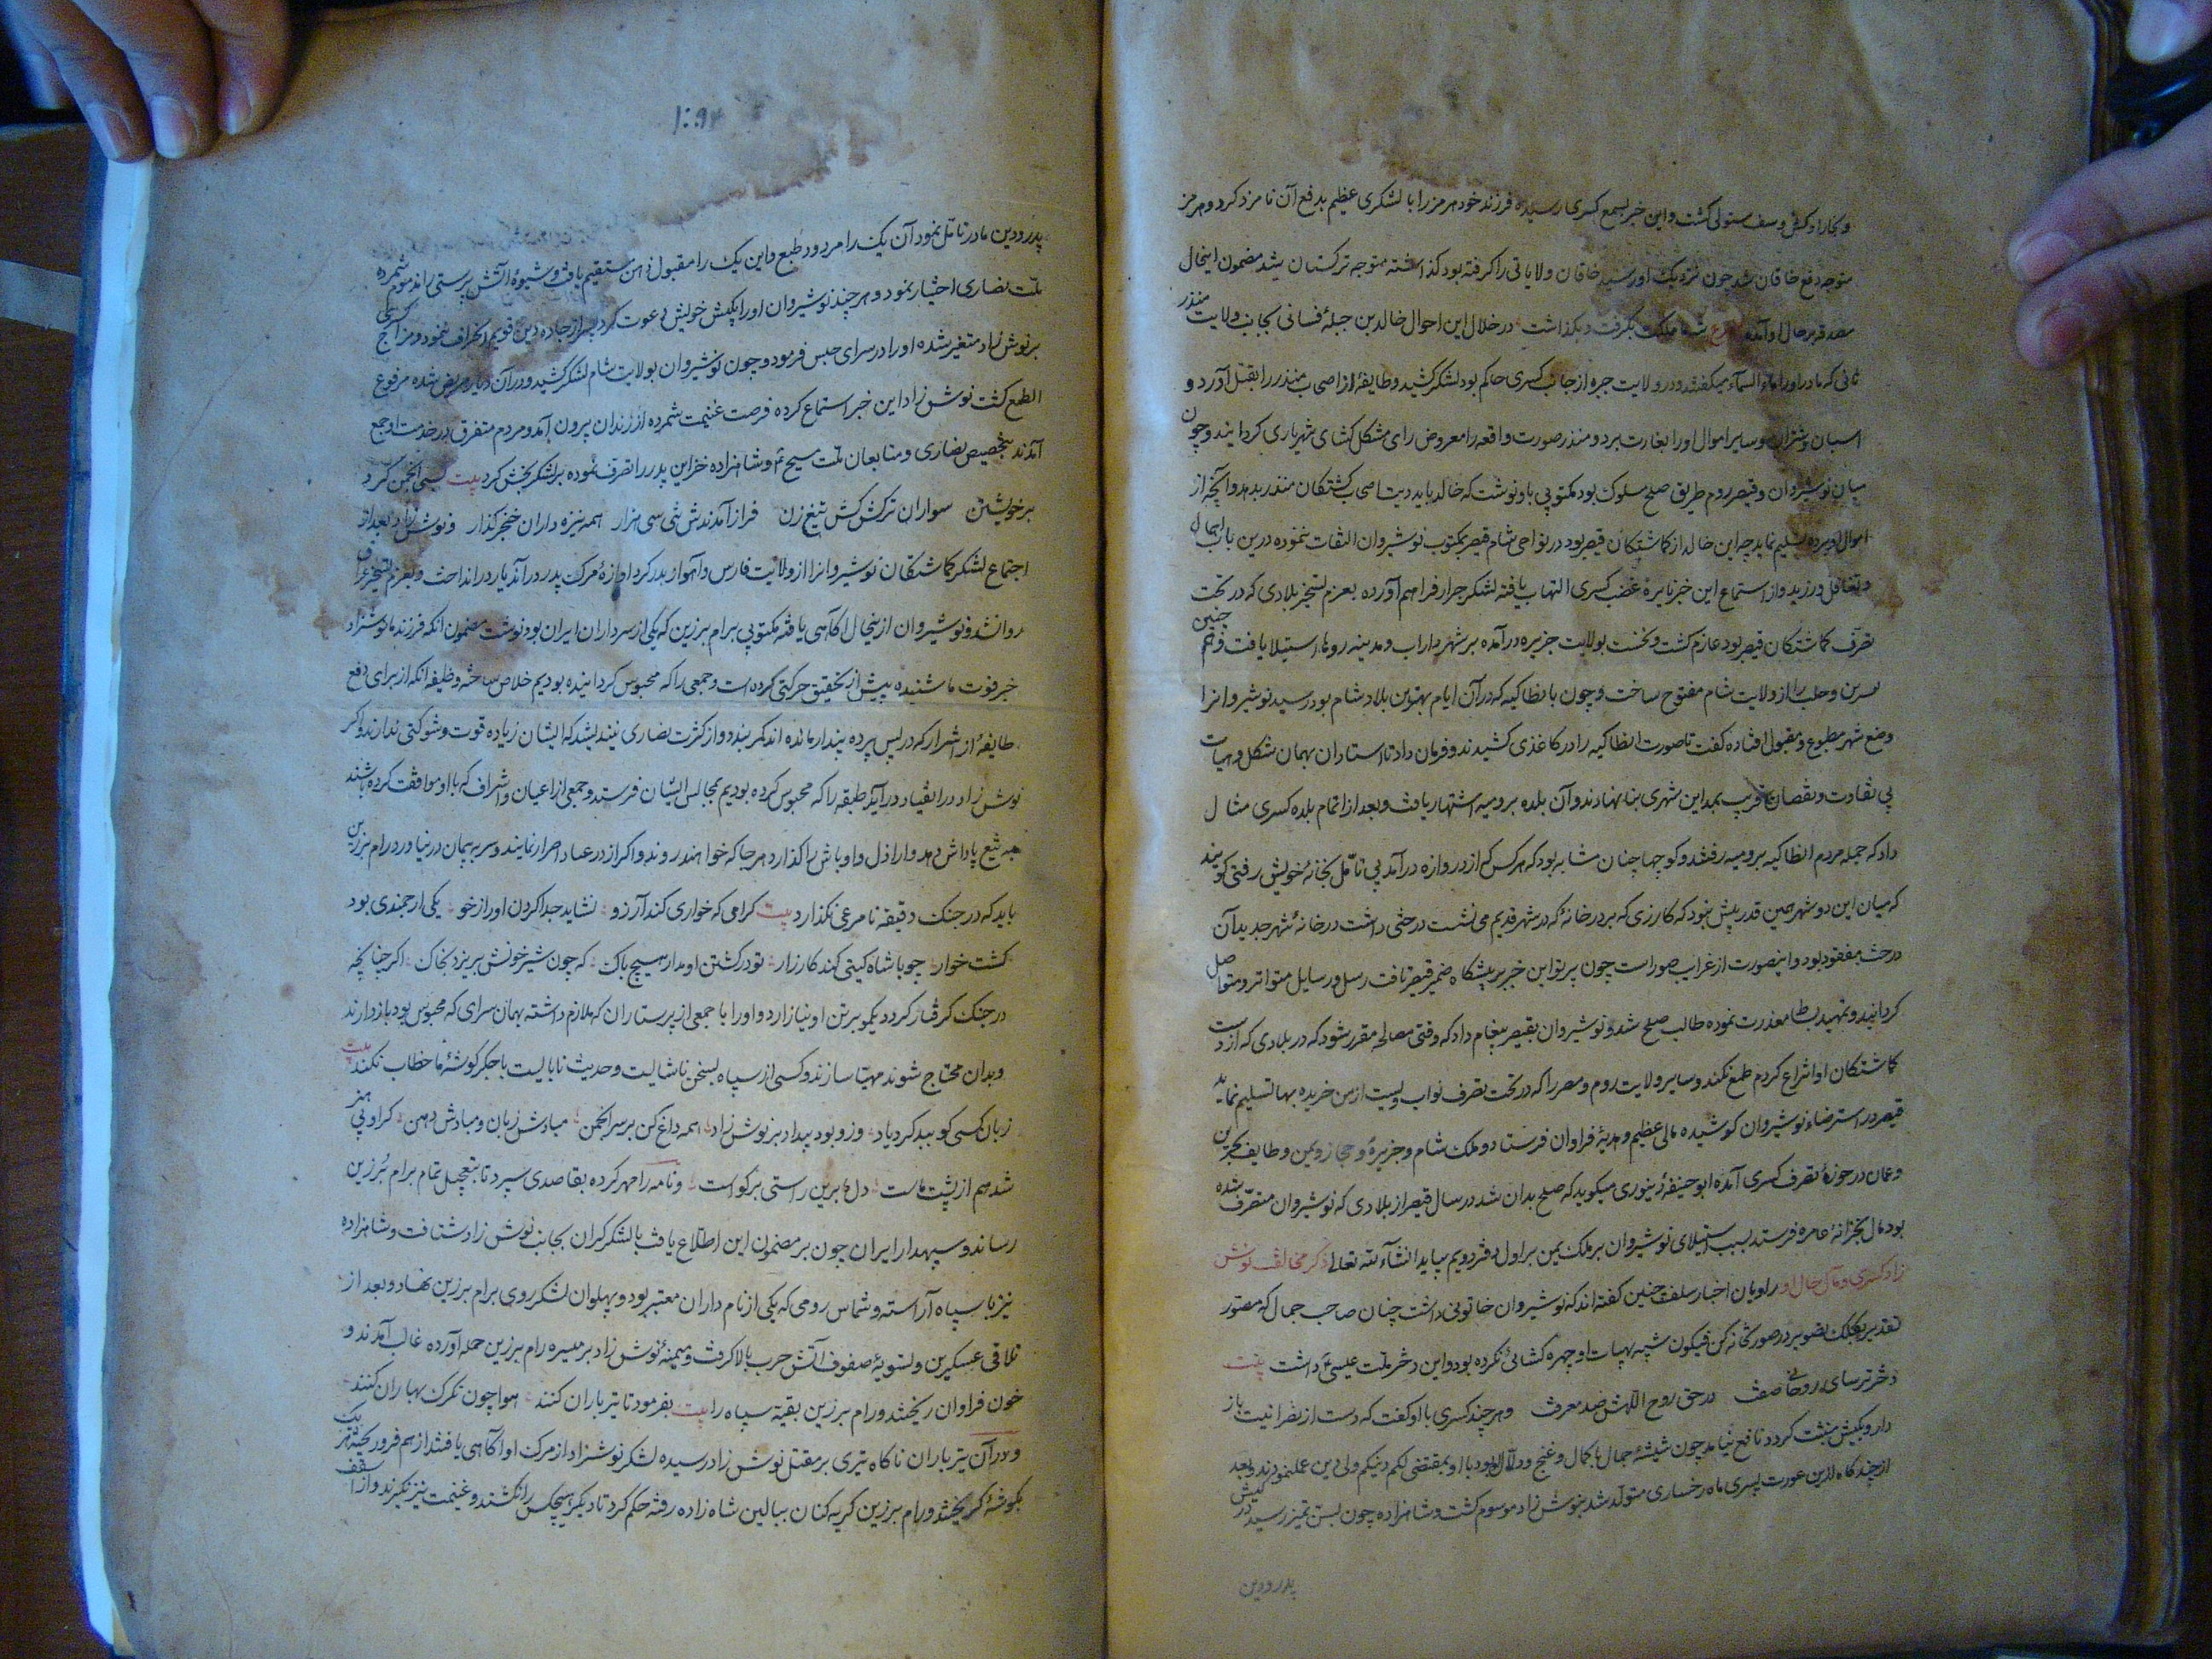 و بخارا و کش و نسف مستولی گشت و این خبر بسمع کسری رسیده فرزند خود هرمز را با لشکری عظیم بدفع آن نامزد کرد و هرمز
متوجه دفع خاقان شد چون نزدیک او رسید خاقان ولایاتی را گرفته بود گذاشته متوجه ترکستان شد مضمون اینحال
مصدقه بر حال او آمد مملکت بگرفت و بگذاشت در خلال این احوال خالد بن جبلهٔ غسانی بجانب ولایت منذر
ثانی که مادر او را ماء السماء میگفتند و در ولایت حیره از جانب کسری حاکم بود لشکر کشید و طایفهٔ از اصحاب منذر را بقتل آورد و
اسبان و شتران و سایر اموال او را بغارت برد و منذر صورت واقعه را معروض رای مشکل کشای شهریاری گردانید و چون
میان نوشیروان و قیصر روم طریق صلح مسلوک بود مکتوبی باو نوشت که خالد باید دیت اصحاب کشتگان منذر بدهد و آنچه از
اموال او برده تسلیم نماید چه این خالد از گماشتگان قیصر بود در نواحی شام قیصر بمکتوب نوشیروان التفات ننموده درین باب اهمال
و تغافل ورزید و از استماع این خبر نایرهٔ غضب کسری التهاب یافته لشکر جرار فراهم آورده بعزم تسخیر بلادی که در تحت
تصرف گماشتگان قیصر بود عازم گشت و نخست بولایت جزیره درآمده بر شهر داراب و مدینه روها استیلا یافت و هم چنین
قنسرین و حلب را از ولایت شام مفتوح ساخت و چون بانطاکیه که در آن ایام بهترین بلاد شام بود رسید نوشیروانرا
وضع شهر مطبوع و مقبول افتاده گفت تا صورت انطاکیه را در کاغذی کشیدند و فرمان داد تا استادان بهمان شکل و هیات
بی تفاوت و نقصان قریب بمداین شهری بنا نهادند و آن بلده برومیه اشتهار یافت و بعد از اتمام بلده کسری مثال
داد که جمله مردم انطاکیه برومیه رفتند و کوچها چنان مشابه بود که هر کس که از دروازه درآمد بی تامل بخانهٔ خویش رفتی گویند
که میان این دو شهر همین قدر بیش نبود که گازری که بر در خانهٔ که در شهر قدیم می نشست درختی داشت در خانهٔ شهر جدید آن
درخت مفقود بود و اینصورت از غرایب صور است چون پرتو این خبر بر پیشگاه ضمیر قیصر تافت رسل و رسایل متواتر و متواصل
گردانید و تمهید بساط معذرت نموده طالب صلح شد و نوشیروان بقیصر پیغام داد که وقتی مصالحه مقرر شود که در بلادی که از دست
گماشتگان او انتزاع کردم طمع نکند و سایر ولایت روم و مصر را که در تحت تصرف نواب ویست از من خریده بها تسلیم نماید
قیصر در استرضاء نوشیروان کوشیده مالی عظیم و هدیهٔ فراوان فرستاد و ملک شام و جزیره و حجاز و یمن و طایف بحرین
و عمان در حوزهٔ تصرف کسری آمده ابو حنیفهٔ دینوری میگوید که صلح بدان شد در سال قیصر از بلادی که نوشیروان متصرف شده
بود مال بخزانهٔ عامره فرستد سبب استیلای نوشیروان بر ملک یمن بر اول دفتر دویم بیاید انشاء الله تعالی ذکر مخالفت نوش
زاد کسری و مآل حال او راویان اخبار سلف چنین گفته اند که نوشیروان خاتونی داشت چنان صاحب جمال که مصور
تقدیر بکلک تصویر در صورتخانه کن فیکون شبیه بهیات او چهره گشائی نکرده بود و این دختر ملت عیسی داشت بیت
دختر ترسای روحانی صفت در حق روح اللهش صد معرفت و هر چند کسری با او گفت که دست از نصرانیت باز
دار و بکیش متبت گردد نافع نیامد چون شیشهٔ جمال با کمال و غنج و دلال بود با او بمقتضی لکم دینکم ولی دین عمل نمودند و بعد
از چندگاه از این عورت پسری ماه رخساری متولد شد بنوش زاد موسوم گشت و شاهزاده چون بسن تمیز رسید در کیش
پدر و دین
۱۰۹۳
پدر و دین مادر تامل نمود آن یک را مردود طبع و این یک را مقبول ذهن مستقیم یافت و شیوهٔ آتش پرستی را مذموم شمرده
ملت نصاری اختیار نمود و هر چند نوشیروان او را بکیش خویش دعوت کرد پسر از جاده دین قویم انحراف ننمود و مزاج کسری
بر نوش زاد متغیر شده او را در سرای حبس فرمود و چون نوشیروان بولایت شام لشکر کشید و در آن دیار مریض شده مرفوع
الطمع گشت نوش زاد این خبر استماع کرده فرصت غنیمت شمرده از زندان بیرون آمد و مردم متفرق در خدمت او جمع
آمدند بتخصیص نصاری و متابعان ملت مسیح و شاهزاده خزاین پدر را تصرف نموده بر لشکر بخش کرد بیت کسی انجمن کرد
بر خویشتن سواران ترکش کش تیغ زن فراز آمدندش تنی سی هزار همه نیزه داران خنجر گذار و نوش زاد بعد از
اجتماع لشکر گماشتگان نوشیروانرا از ولایت فارس و اهواز بدر کرد آوازهٔ مرگ پدر در آن دیار در انداخت و بعزم تسخیر عراق
روانشد و نوشیروان از اینحال آگاهی یافته مکتوبی برام برزین که یکی از سرداران ایران بود نوشت مضمون آنکه فرزند ما نوشزاد
خبر فوت ما شنیده پیش از تحقیق حرکتی کرده است و جمعی را که محبوس گردانیده بودیم خلاص ساخته وظیفه آنکه از برای دفع
طایفهٔ از اشرار که در پس پرده پندار مانده اند کمر بندد و از کثرت نصاری نیندیشد که ایشان زیاده قوت و شوکتی ندارند و اگر
نوش زاد در انقیاد درآید طبقه را که محبوس کرده بودیم بمجالس ایشان فرستد و جمعی از اعیان و اشراف که با او موافقت کرده باشند
به تیغ پاداش دهد و اراذل و اوباش را گذارد هر جا که خواهند روند و اگر از در عناد اصرار نمایند و سر به پیمان در نیاورد رام برزین
باید که در جنگ دقیقه نامرعی نگذارد بیت گرامی که خواری کند آرزو نشاید جدا کردن او را ز خو یکی ارجمندی بود
گشت خوار چو با شاه گیتی کند کارزار تو در کشتن او مدار هیچ باک که چون شیر خونش بریزد بخاک اگر چنانچه
در جنگ گرفتار گردد دیگر بر تن او نیازارد و او را با جمعی از پرستاران که ملازم داشته بهمان سرای که محبوس بود باز دارند
و بدان محتاج شوند مهیا سازند و کسی از سپاه بسخن ناشایست و حدیث نابایست با جگر گوشهٔ ما خطاب نکند بیت
زبان کسی کو ببد کرد یاد وزو بود بیداد بر نوش زاد همه داغ کن بر سر انجمن مبادش زبان و مبادش دهن که او بی هنر
شد هم از پشت ماست دل ما برین راستی بر گواست و نامه را مهر کرده بقاصدی سپرد تا بتعجیل تمام برام برزین
رساند و سپهدار ایران چون بر مضمون این اطلاع یافت با لشکر گران بجانب نوش زاد شتافت و شاهزاده
نیز با سپاه آراسته و شماس رومی که یکی از نام داران معتبر بود و پهلوان لشکر روی برام برزین نهاد و بعد از
تلاقی عسکرین و تسویهٔ صفوف آتش حرب بالا گرفت و میمنهٔ نوش زاد بر میسره رام برزین حمله آورده غالب آمدند و
خون فراوان ریختند و رام برزین بقیهٔ سپاه را بیت بفرمود تا تیر باران کنند هوا چون تگرگ بهاران کنند
و در آن تیر باران ناگاه تیری بر مقتل نوش زاد رسیده لشکر نوشزاد از مرگ او آگاهی یافتند از هم فرو ریخته هر یک
بگوشهٔ گریختند و رام برزین گریه کنان ببالین شاه زاده رفته حکم کرد تا دیگر هیچکس را نکشتند و غنیمت نیز نگیرند و از اسقف